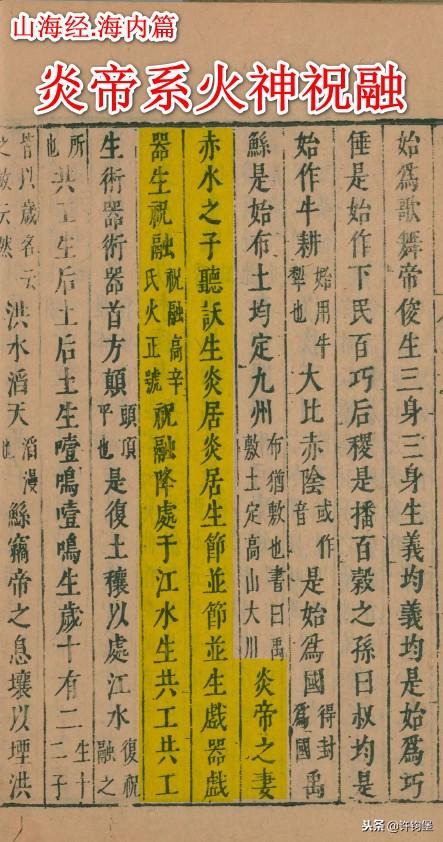 山海经.海内篇
炎帝系火神祝融
始爲歌舞帝俊生三身三身生義均義均是始爲巧
倕是始作下民百巧后稷是播百穀之孫曰叔均是
始作牛耕始用牛犁也大比赤陰或作音是始爲國得封爲國禹
鯀是始布土均定九州布猶敷也書曰禹敷土定高山大川炎帝之妻
赤水之子聽訞生炎居炎居生節並節並生戲器戲
器生祝融祝融高辛氏火正號祝融降處于江水生共工共工
生術器術器首方顛頭頂平也是復土穰以處江水復祝融之
所也共工生后土后土生噎鳴噎鳴生歲十有二生十二子
皆以歲名云之故云然洪水滔天滔漫也鯀竊帝之息壤以堙洪
头条@许钧堡